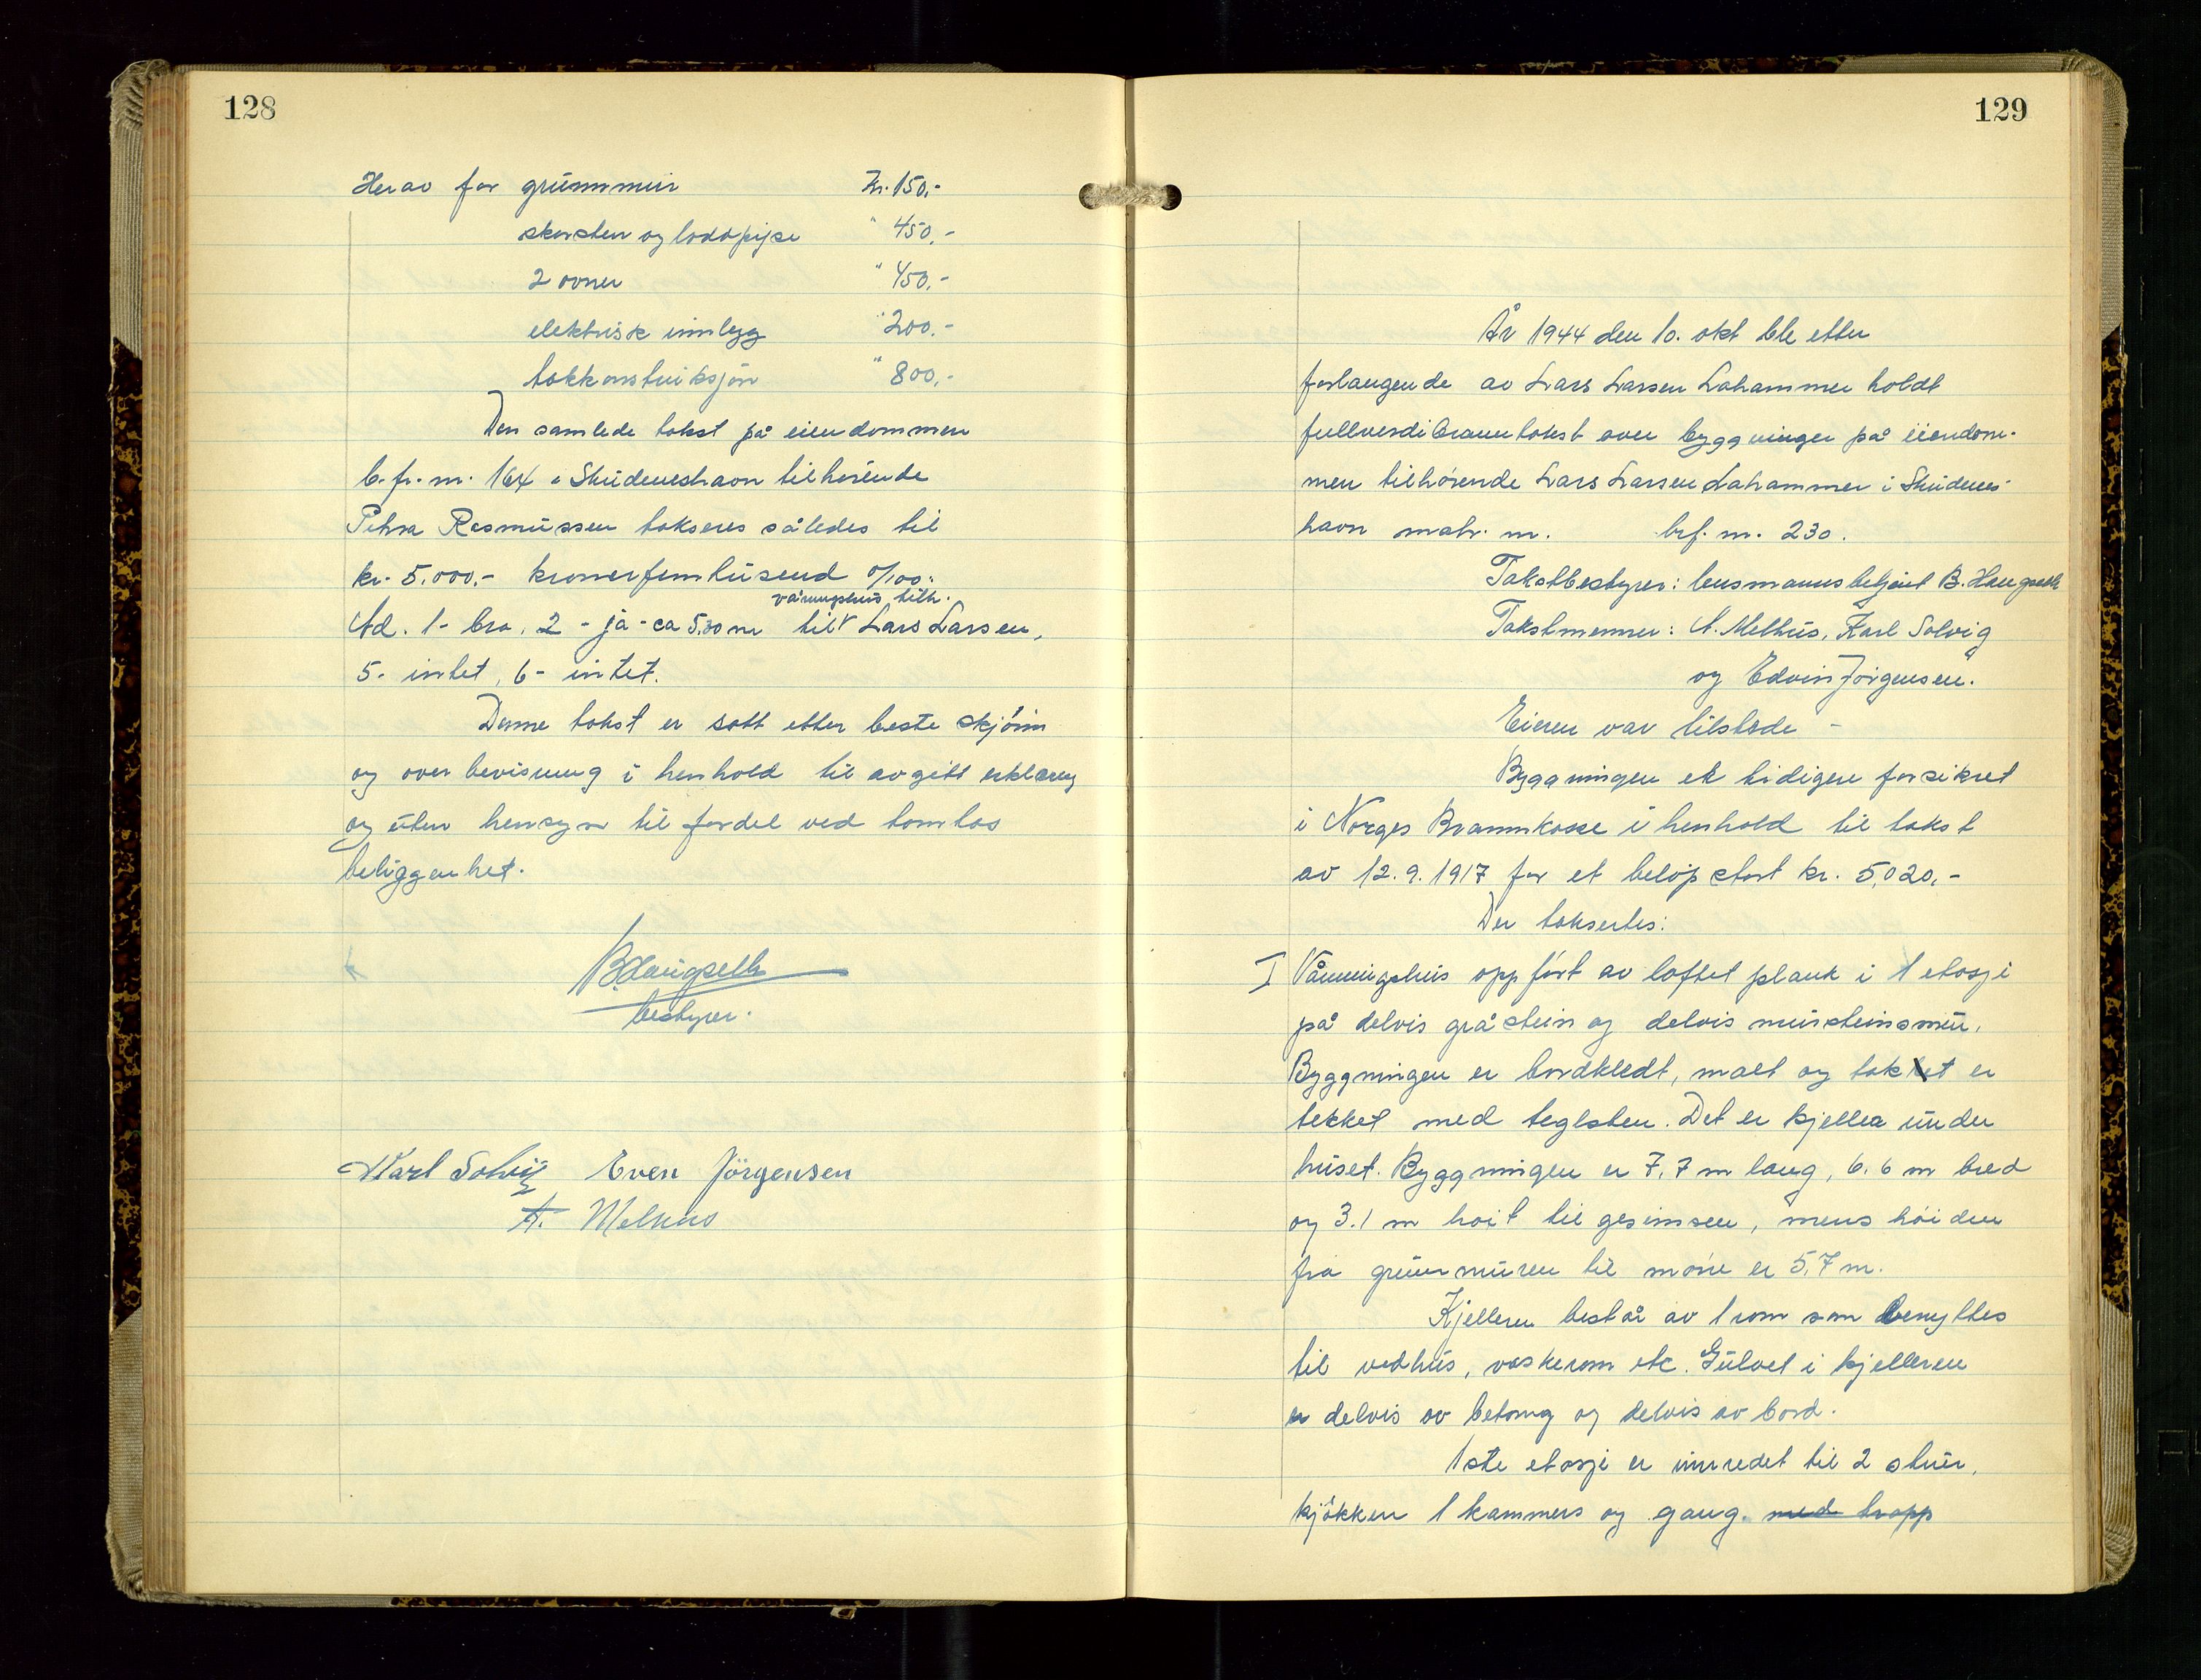 128
Herav for grunnmur Kr. 150,-
skorsten og lodd pipe " 450,-
2 ovner " 450,-
elektrisk innlegg " 200,-
takkonstruksjon " 800,-
Den samlede takst på eiendommen
b.fr.nr. 164 i Skudeneshavn tilhørende
Petra Rasmussen takseres således til
kr. 5.000,- kronerfemtusend 0/100.
våningshus tilh.
Ad. 1- bra, 2 - ja - ca 5,00 m til Lars Larsen,
5- intet, 6- intet.
Denne takst er satt etter beste skjønn
og overbevisning i henhold til avgitt erklæring
og uten hensyn til fordel ved tomtas
beliggenhet.
B. Haugseth
bestyrer.
Karl Solvig Even Jörgensen
A. Melhus
129
År 1944 den 10. okt ble etter
forlangende av Lars Larsen Lahammer holdt
fullverdibranntakst over byggninger på eiendom-
men tilhørende Lars Larsen Lahammer i Skudenes-
havn matr. nr. brf. nr. 230.
Takstbestyrer: lensmannsbetjent B. Haugseth
Takstmenner: A. Melhus, Karl Solvig
og Edvin Jörgensen.
Eieren var tilstede -
Byggningen et tidigere forsikret
i Norges Brannkasse i henhold til takst
av 12.9.1917 for et beløp stort kr. 5,020,-
Der taksertes:
I Våningshus oppført av laftet plank i 1 etasje
på delvis gråstein og delvis mursteinsmur.
Byggningen er bordkledt, malt og taket er
tekket med teglsten. Det er kjeller under
huset. Byggningen er 7,7 m lang, 6.6 m bred
og 3.1 m høit til gesimsen, mens høiden
fra grunnmuren til møne er 5,7 m.
Kjelleren består av 1 rom som benyttes
til vedhus, vaskerom etc. Gulvet i kjelleren
er delvis av betong og delvis av bord.
1ste etasje er innredet til 2 stuer,
kjøkken 1 kammers og gang. med trapp